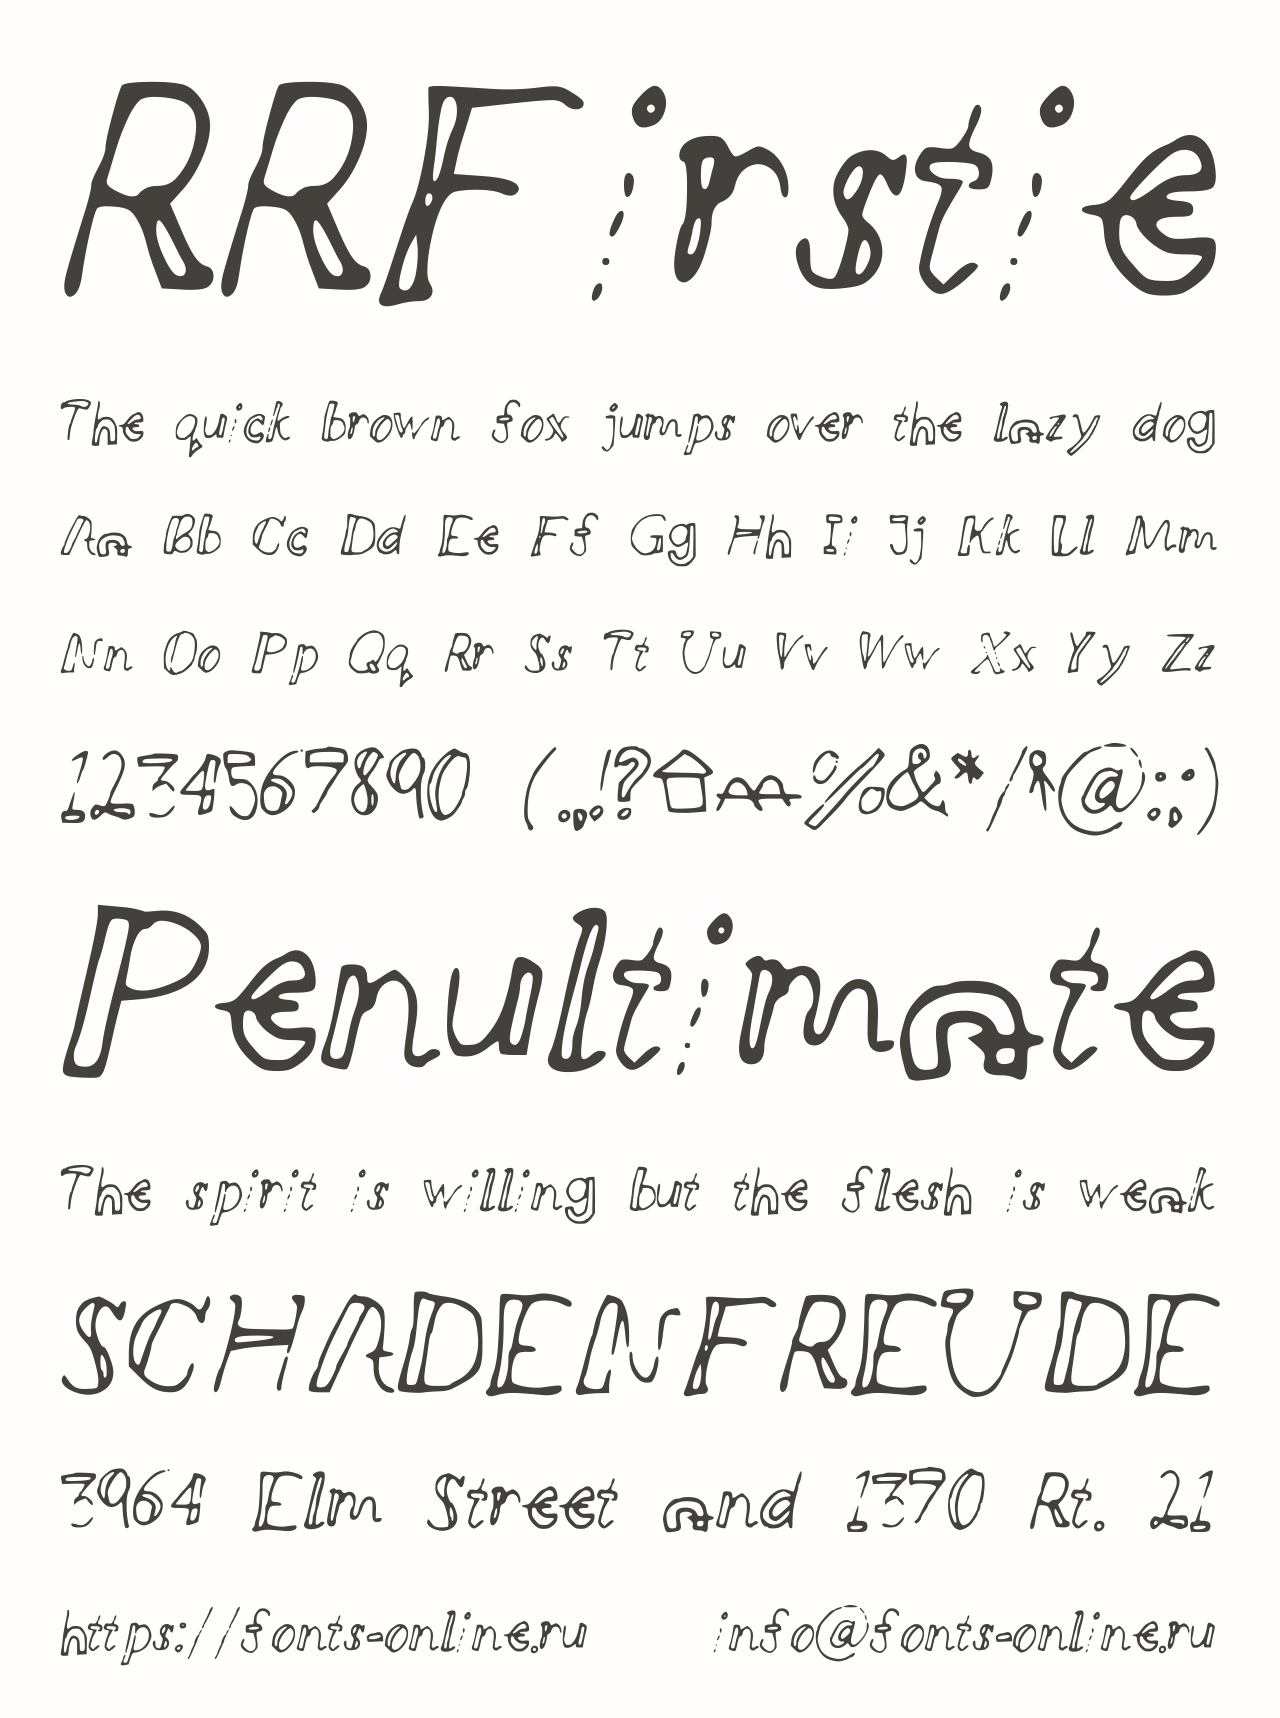 RRFirstie
The quick brown fox jumps over the lazy dog
Aa Bb Cc Dd Ee Ff Gg Hh Ii Jj Kk Ll Mm
Nn Oo Pp Qq Rr Ss Tt Uu Vv Ww Xx Yy Zz
1234567890 (.,!?%&*/@:;)
Penultimate
The spirit is willing but the flesh is weak
SCHADENFREUDE
3964 Elm Street and 1370 Rt. 21
https://fonts-online.ru info@fonts-online.ru